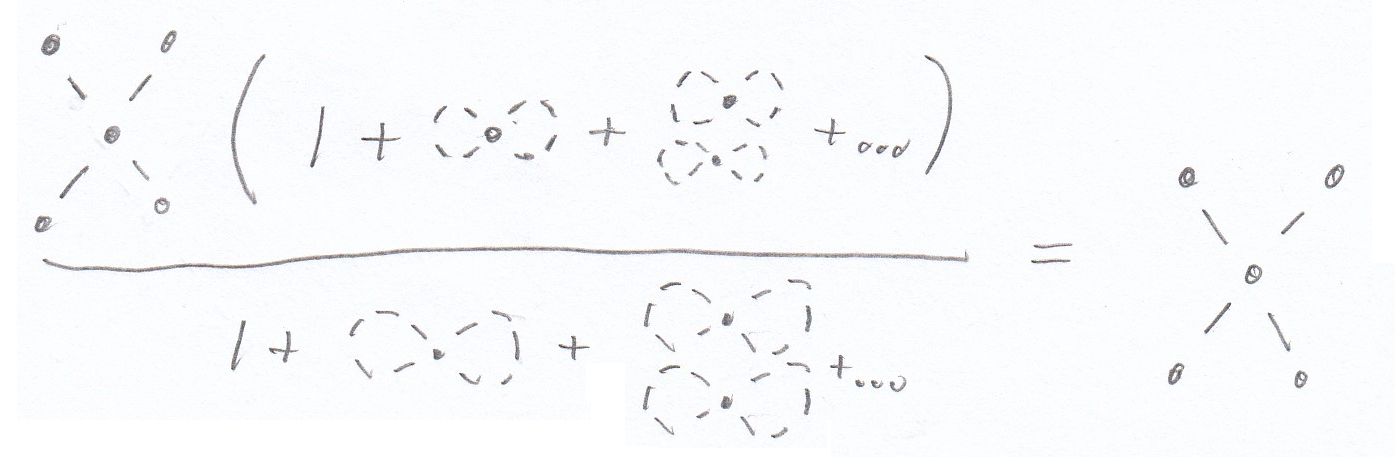 ( 1 + + +... )
=
1 + + +...